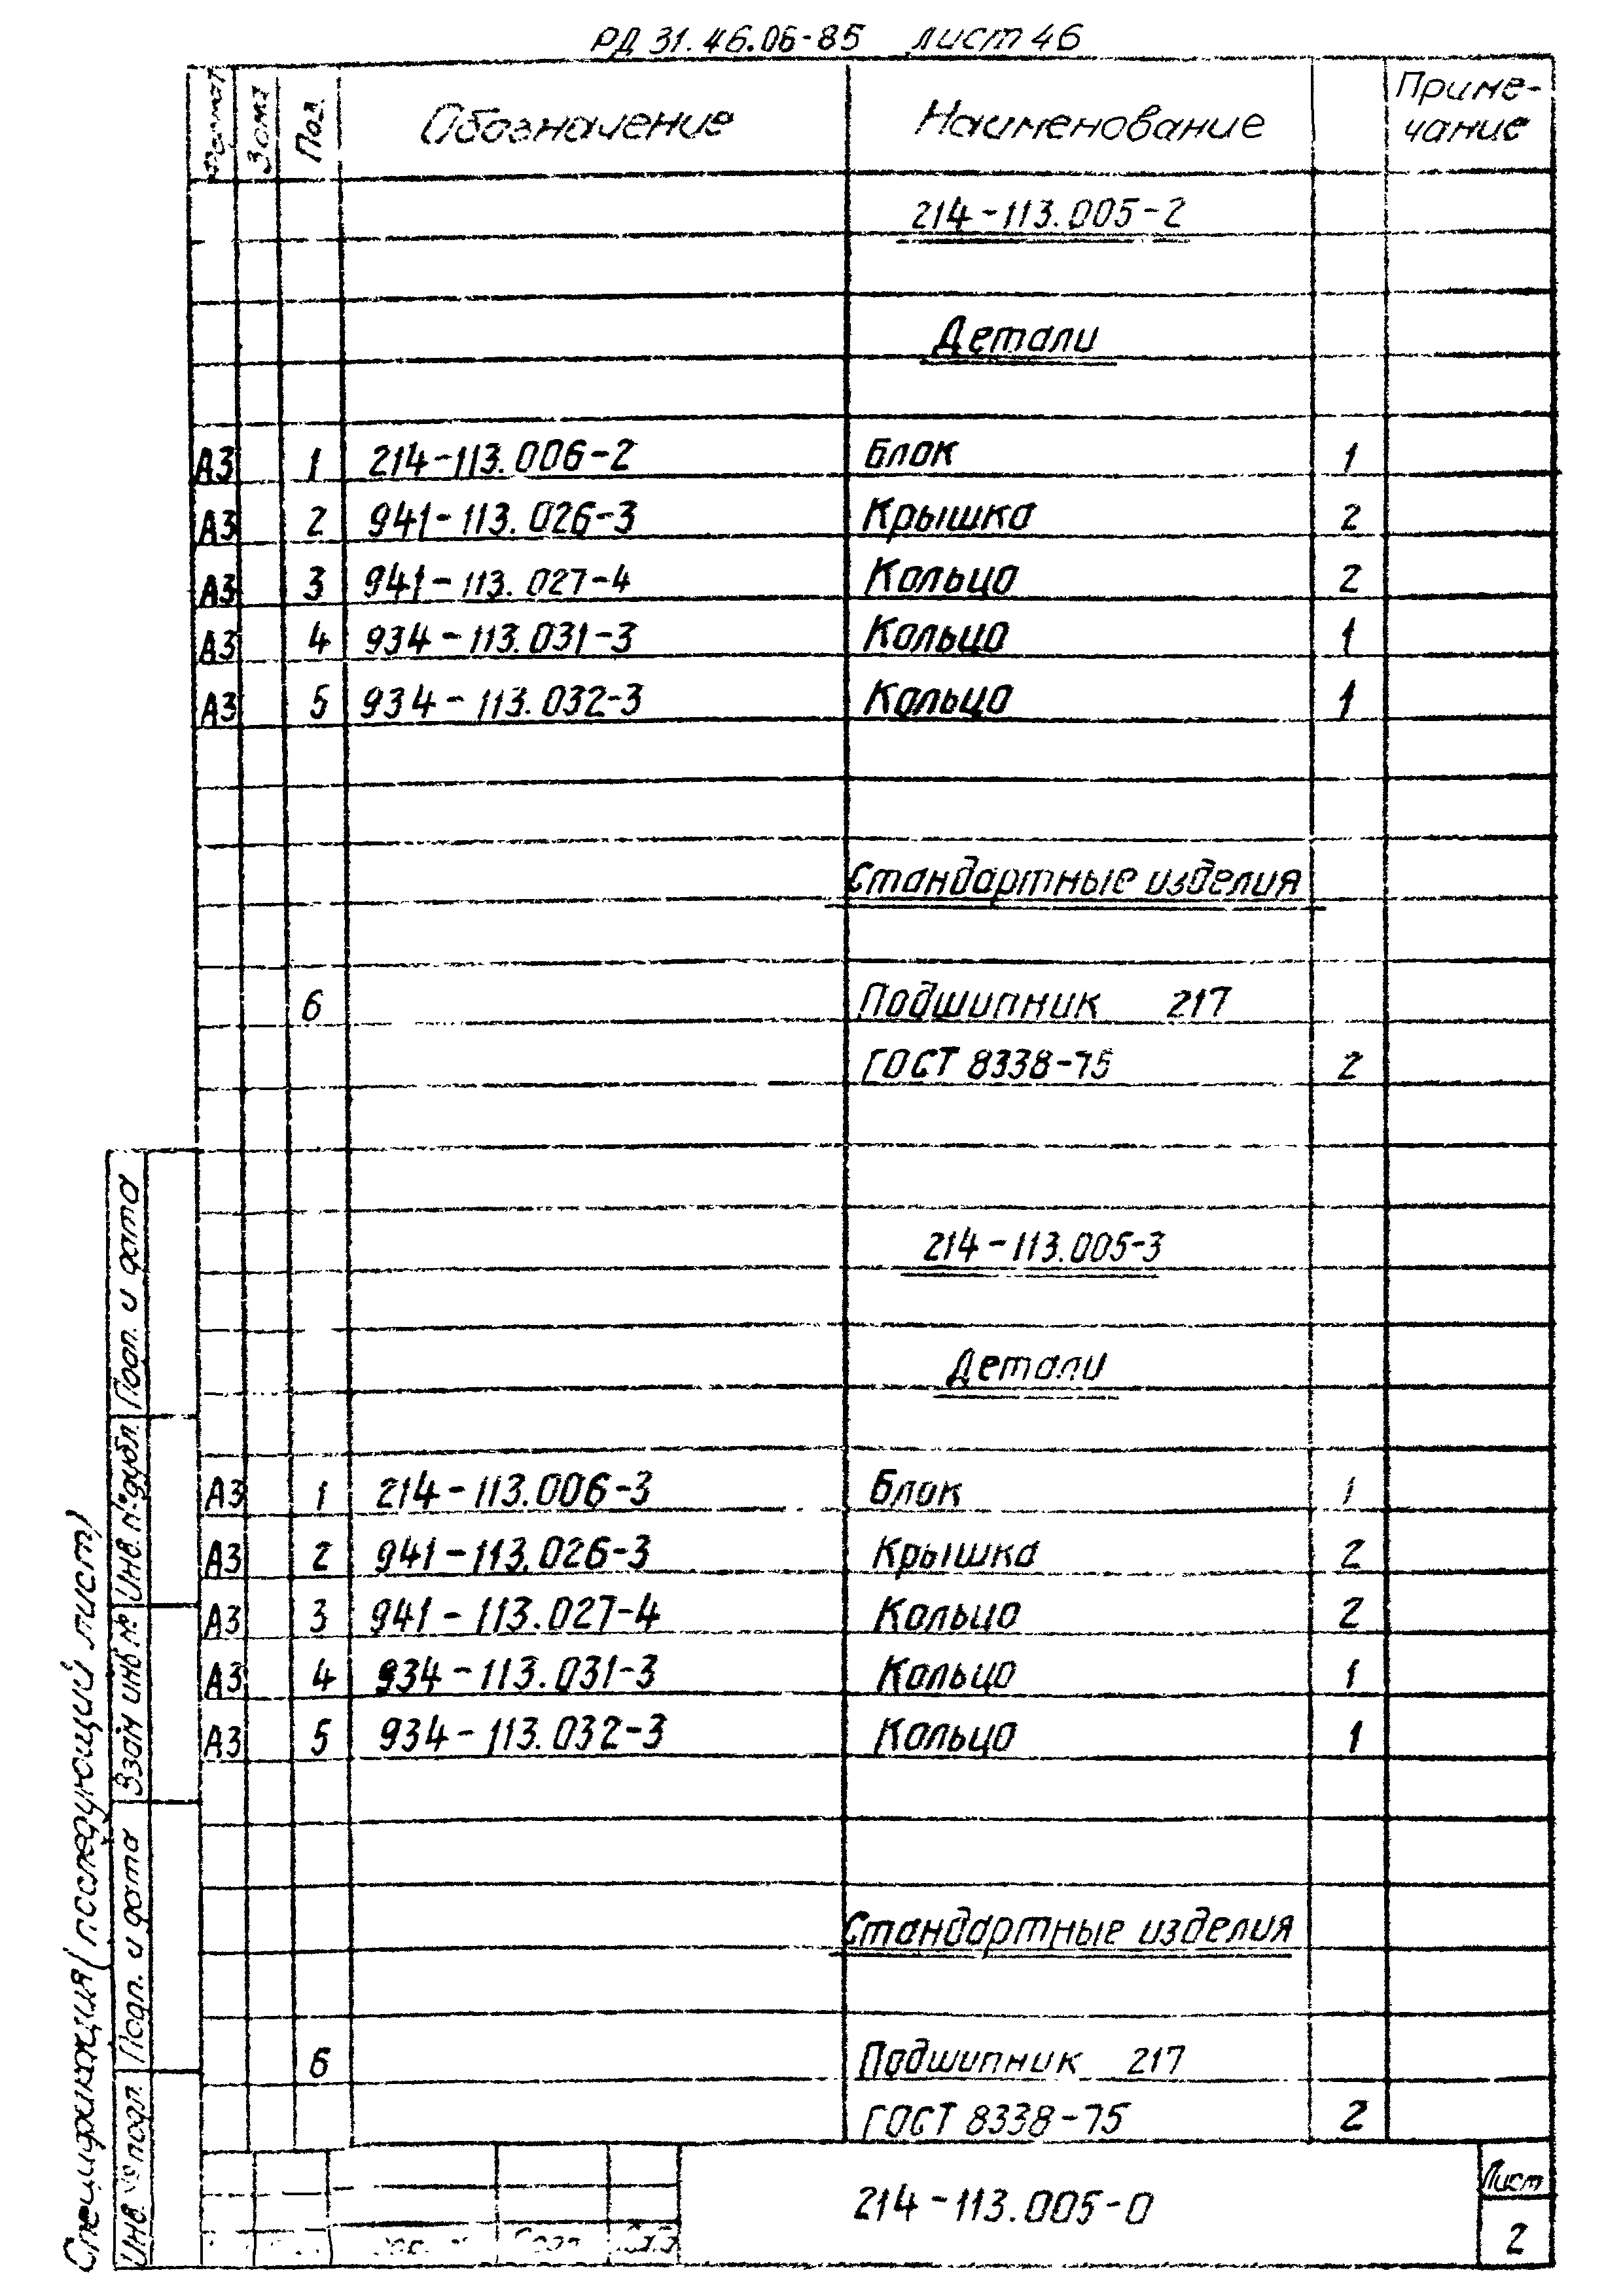 РД 31.46.06-85 лист 46
Формат Зона Поз. Обозначение Наименование Приме-
чание
214-113.005-2
Детали
А3 1 214-113.006-2 Блок 1
А3 2 941-113.026-3 Крышка 2
А3 3 941-113.027-4 Кольцо 2
А3 4 934-113.031-3 Кольцо 1
А3 5 934-113.032-3 Кольцо 1
Стандартные изделия
6 Подшипник 217
ГОСТ 8338-75 2
214-113.005-3
Детали
А3 1 214-113.006-3 Блок 1
А3 2 941-113.026-3 Крышка 2
А3 3 941-113.027-4 Кольцо 2
А3 4 934-113.031-3 Кольцо 1
А3 5 934-113.032-3 Кольцо 1
Стандартные изделия
6 Подшипник 217
ГОСТ 8338-75 2
214-113.005-0
Лист
2
Спецификация (последующий лист)
Инв. № подл.
Подп. и дата
Взам инв №
Инв. № дубл.
Подп. и дата